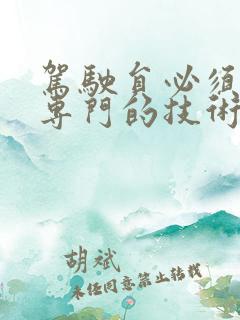 駕駛貟必須
專門的技術
胡斌
未任同意禁止转载